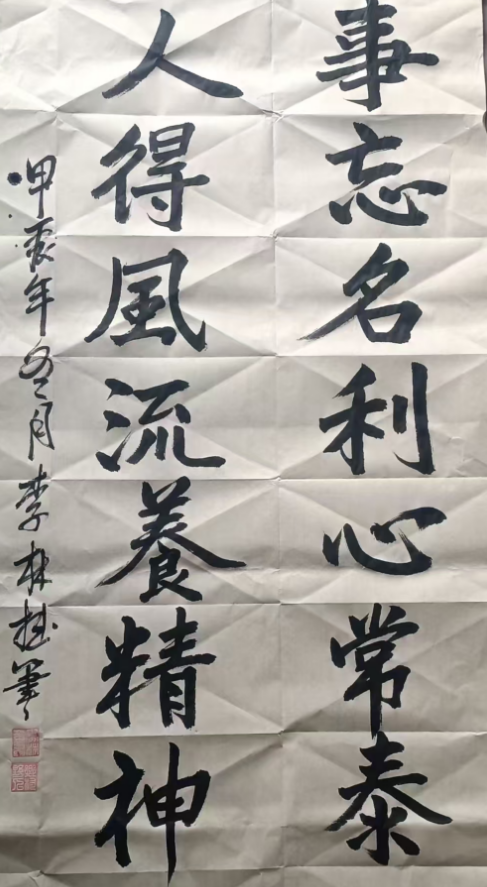 事忘名利心常泰
人得風流養精神
甲辰年冬月李林拙筆